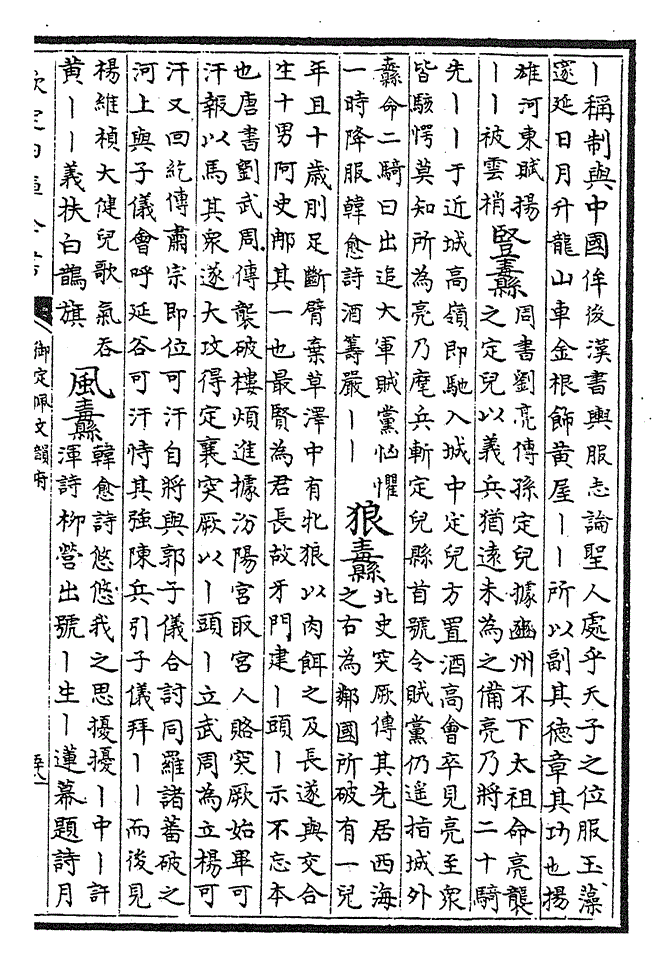 丨稱制與中國侔後漢書輿服志論聖人處乎天子之位服玉藻
邃延日月升龍山車金根飾黄屋丨丨所以副其徳章其功也揚
雄河東賦揚
丨丨被雲梢
豎纛
周書劉亮傳孫定兒據豳州不下太祖命亮襲
之定兒以義兵猶遠未為之備亮乃將二十騎
先丨丨于近城高嶺即馳入城中定兒方置酒高會卒見亮至衆
皆駭愕莫知所為亮乃麾兵斬定兒縣首號令賊黨仍遥指城外
纛命二騎曰出追大軍賊黨忷懼
一時降服韓愈詩酒籌嚴丨丨
狼纛
北史突厥傳其先居西海
之右為鄰國所破有一兒
年且十歳則足斷臂棄草澤中有牝狼以肉餌之及長遂與交合
生十男阿史那其一也最賢為君長故牙門建丨頭丨示不忘本
也唐書劉武周傳襲破樓煩進據汾陽宮取宮人賂突厥始畢可
汗報以馬其衆遂大攻得定襄突厥以丨頭丨立武周為立楊可
汗又回紇傳肅宗即位可汗自將與郭子儀合討同羅諸蕃破之
河上與子儀會呼延谷可汗恃其強陳兵引子儀拜丨丨而後見
楊維楨大健兒歌氣吞
黄丨丨義扶白鵲旗
風纛
韓愈詩悠悠我之思擾擾丨中丨許
渾詩柳營出號丨生丨蓮幕題詩月
欽定四庫全書
御定佩文韻府